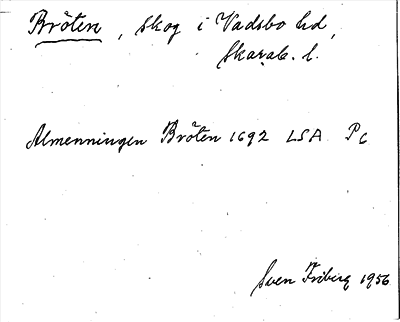 Bröten, skog i Vadsbo hd,
Skarab. l.
Almenningen Bröten 1692 LSA Pc
Sven Friberg 1956